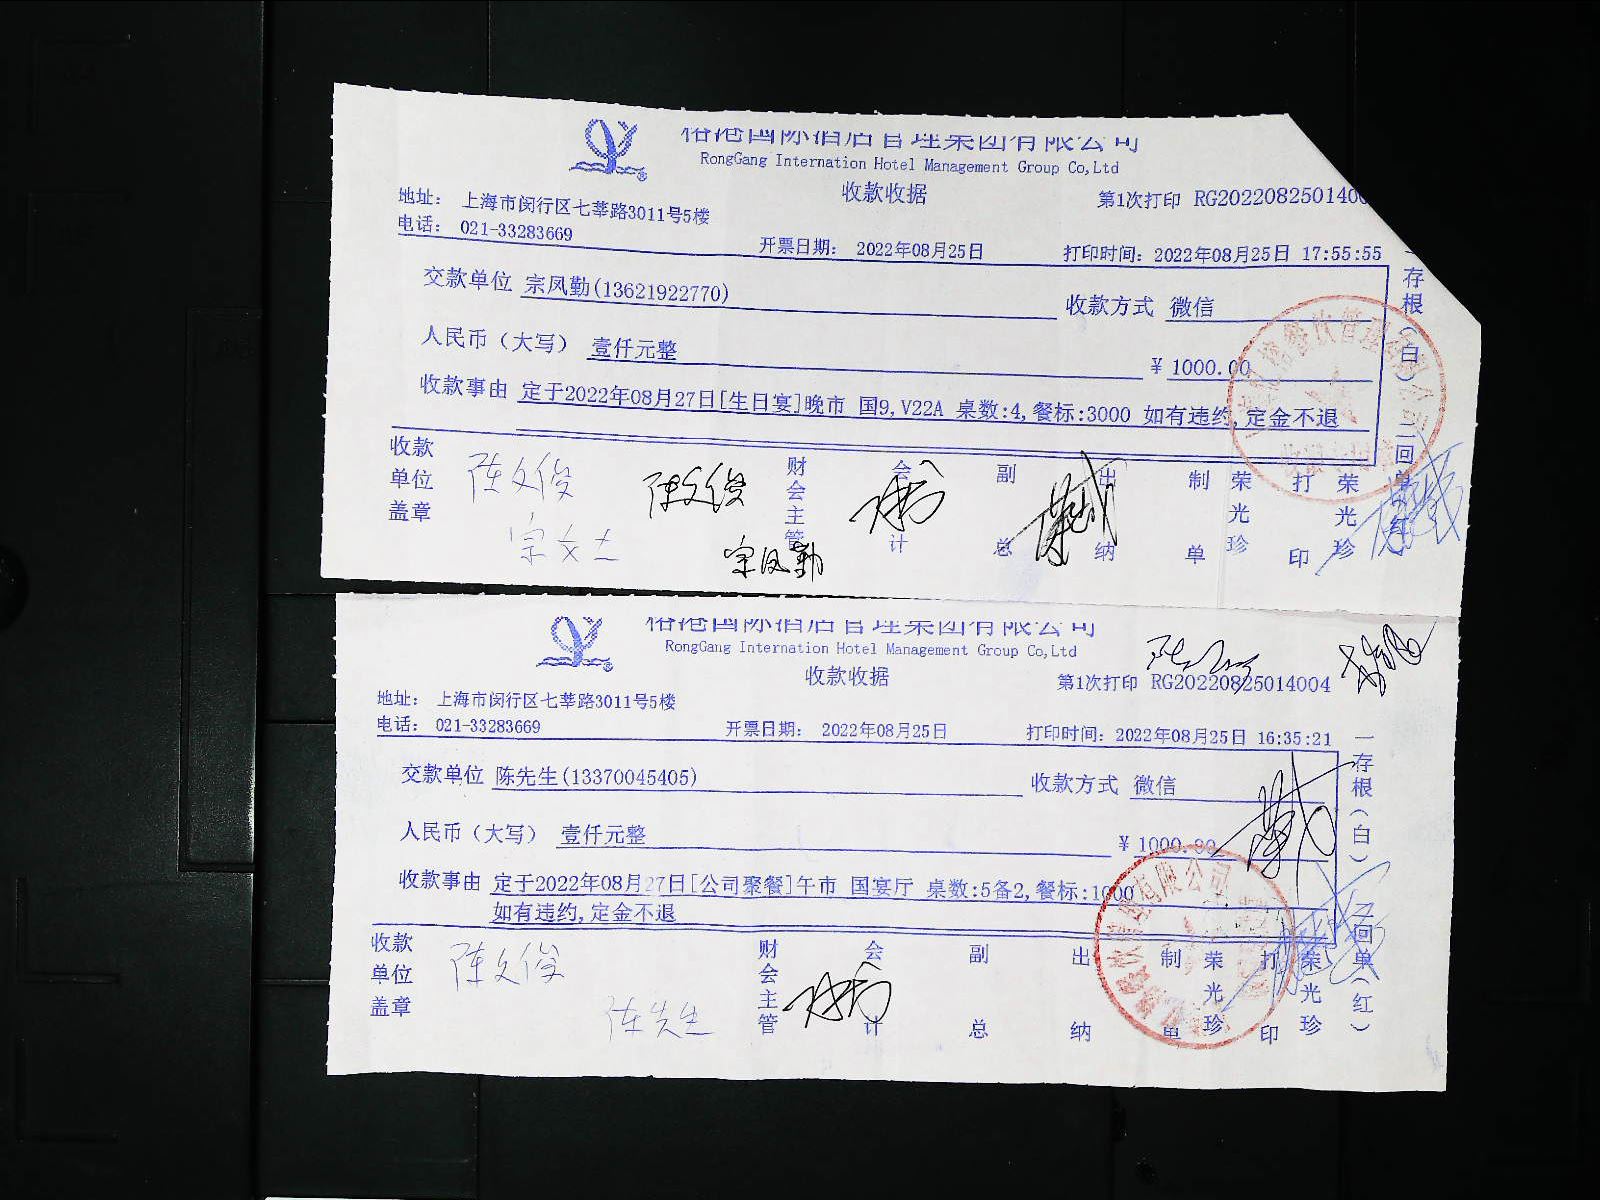 榕港国际酒店管理集团有限公司
RongGang Internation Hotel Management Group Co,Ltd
收款收据
第1次打印 RG2022082501400
地址: 上海市闵行区七莘路3011号5楼
电话: 021-33283669
开票日期: 2022年08月25日
打印时间: 2022年08月25日 17:55:55
交款单位 宗凤勤(13621922770)
收款方式 微信
人民币(大写) 壹仟元整
¥ 1000.00
收款事由 定于2022年08月27日[生日宴]晚市 国9,V22A 桌数:4,餐标:3000 如有违约,定金不退
收款单位盖章
陈文俊
陈文俊
宗凤勤
财会主管
会计
副总
出纳
制单
荣光珍
打印
荣光珍
一存根(白)二回单(红)
榕港国际酒店管理集团有限公司
RongGang Internation Hotel Management Group Co,Ltd
收款收据
第1次打印 RG20220825014004
地址: 上海市闵行区七莘路3011号5楼
电话: 021-33283669
开票日期: 2022年08月25日
打印时间: 2022年08月25日 16:35:21
交款单位 陈先生(13370045405)
收款方式 微信
人民币(大写) 壹仟元整
¥ 1000.00
收款事由 定于2022年08月27日[公司聚餐]午市 国宴厅 桌数:5备2,餐标:1000
如有违约,定金不退
收款单位盖章
陈文俊
陈先生
财会主管
会计
副总
出纳
制单
荣光珍
打印
荣光珍
一存根(白)二回单(红)